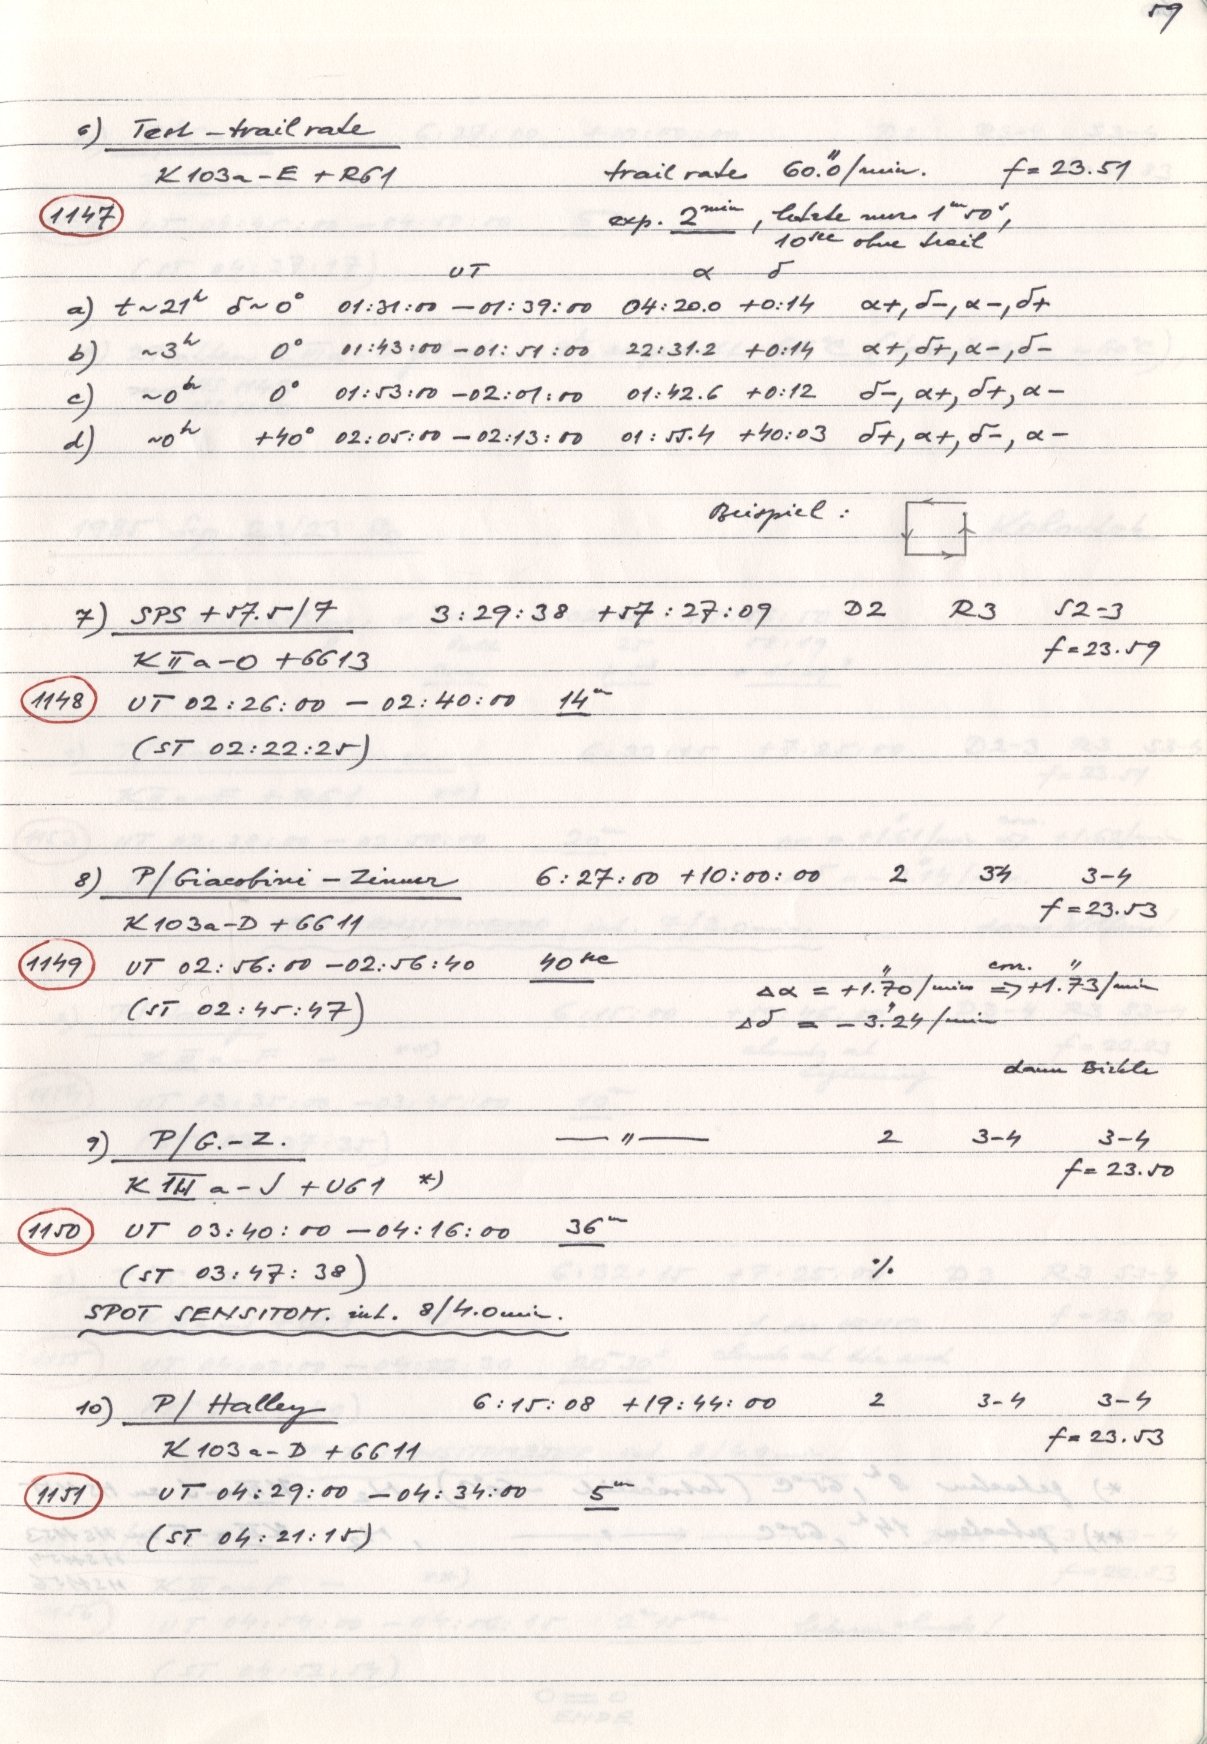 59
6) Test-trailrate
K 103a-E + R61 trailrate 60."0/min. f = 23.51
1147 exp. 2min, letzte nur 1m50s,
10sec ohne trail
UT α δ
a) t~21h δ~0° 01:31:00 - 01:39:00 04:20.0 +0:14 α+, δ-, α-, δ+
b) ~3h 0° 01:43:00 - 01:51:00 22:31.2 +0:14 α+, δ+, α-, δ-
c) ~0h 0° 01:53:00 - 02:01:00 01:42.6 +0:12 δ-, α+, δ+, α-
d) ~0h +40° 02:05:00 - 02:13:00 01:55.4 +40:03 δ+, α+, δ-, α-
Beispiel:
7) SPS +57.5/7 3:29:38 +57:27:09 D2 R3 S2-3
K IIa-O + GG13 f = 23.59
1148 UT 02:26:00 - 02:40:00 14m
(ST 02:22:25)
8) P/Giacobini-Zinner 6:27:00 +10:00:00 2 34 3-4
K 103a-D + GG11 f = 23.53
1149 UT 02:56:00 - 02:56:40 40sec
Δα = +1."70/min corr. => +1."73/min
(ST 02:45:47) Δδ = -3."24/min
dann Wolke
9) P/G.-Z. —— " —— 2 3-4 3-4
K IIIa-J + UG1 *) f = 23.50
1150 UT 03:40:00 - 04:16:00 36m
(ST 03:47:38) %
SPOT SENSITOM. int. 8/4.0min.
10) P/Halley 6:15:08 +19:44:00 2 3-4 3-4
K 103a-D + GG11 f = 23.53
1151 UT 04:29:00 - 04:34:00 5m
(ST 04:21:15)